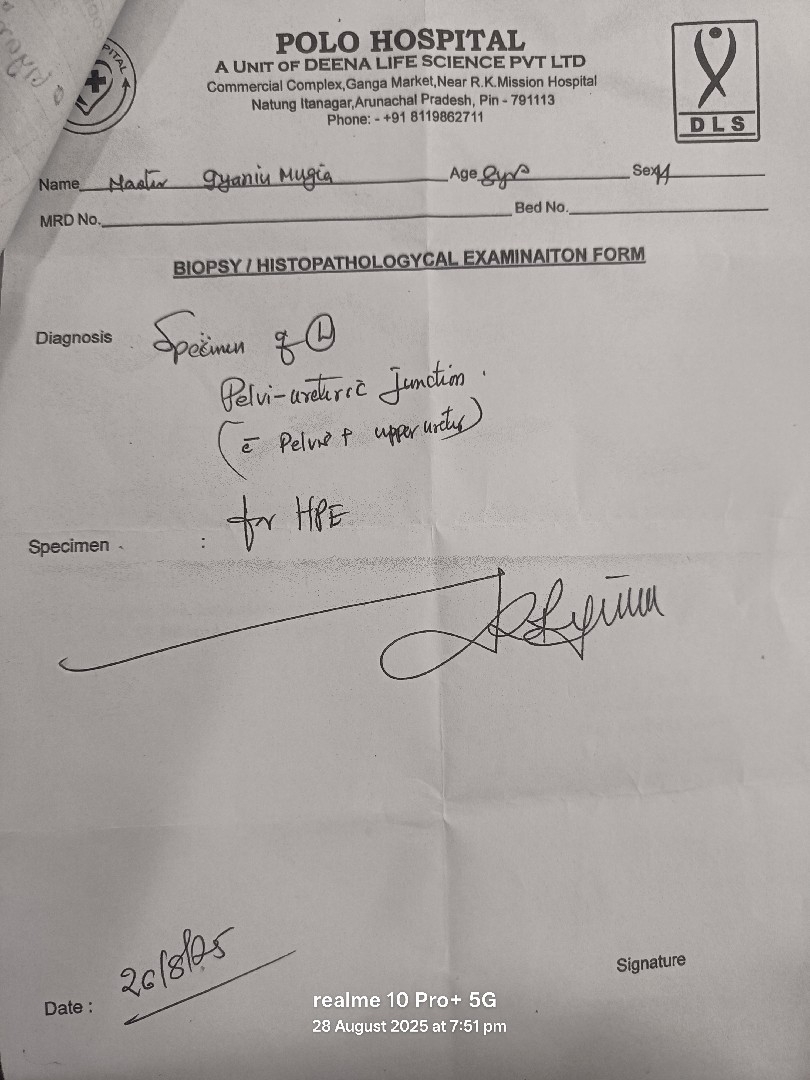 PITAL
POLO HOSPITAL
A UNIT OF DEENA LIFE SCIENCE PVT LTD
Commercial Complex,Ganga Market,Near R.K.Mission Hospital
Natung Itanagar,Arunachal Pradesh, Pin - 791113
Phone: - +91 8119862711
DLS
Name Master Gyaniu Mugia Age 8yrs Sex M
MRD No. Bed No.
BIOPSY / HISTOPATHOLOGYCAL EXAMINAITON FORM
Diagnosis Specimen of (L)
Pelvi-ureteric Junction.
(c̄ Pelvis + upper ureter)
for HPE
Specimen :
26/8/25
Signature
Date :
realme 10 Pro+ 5G
28 August 2025 at 7:51 pm